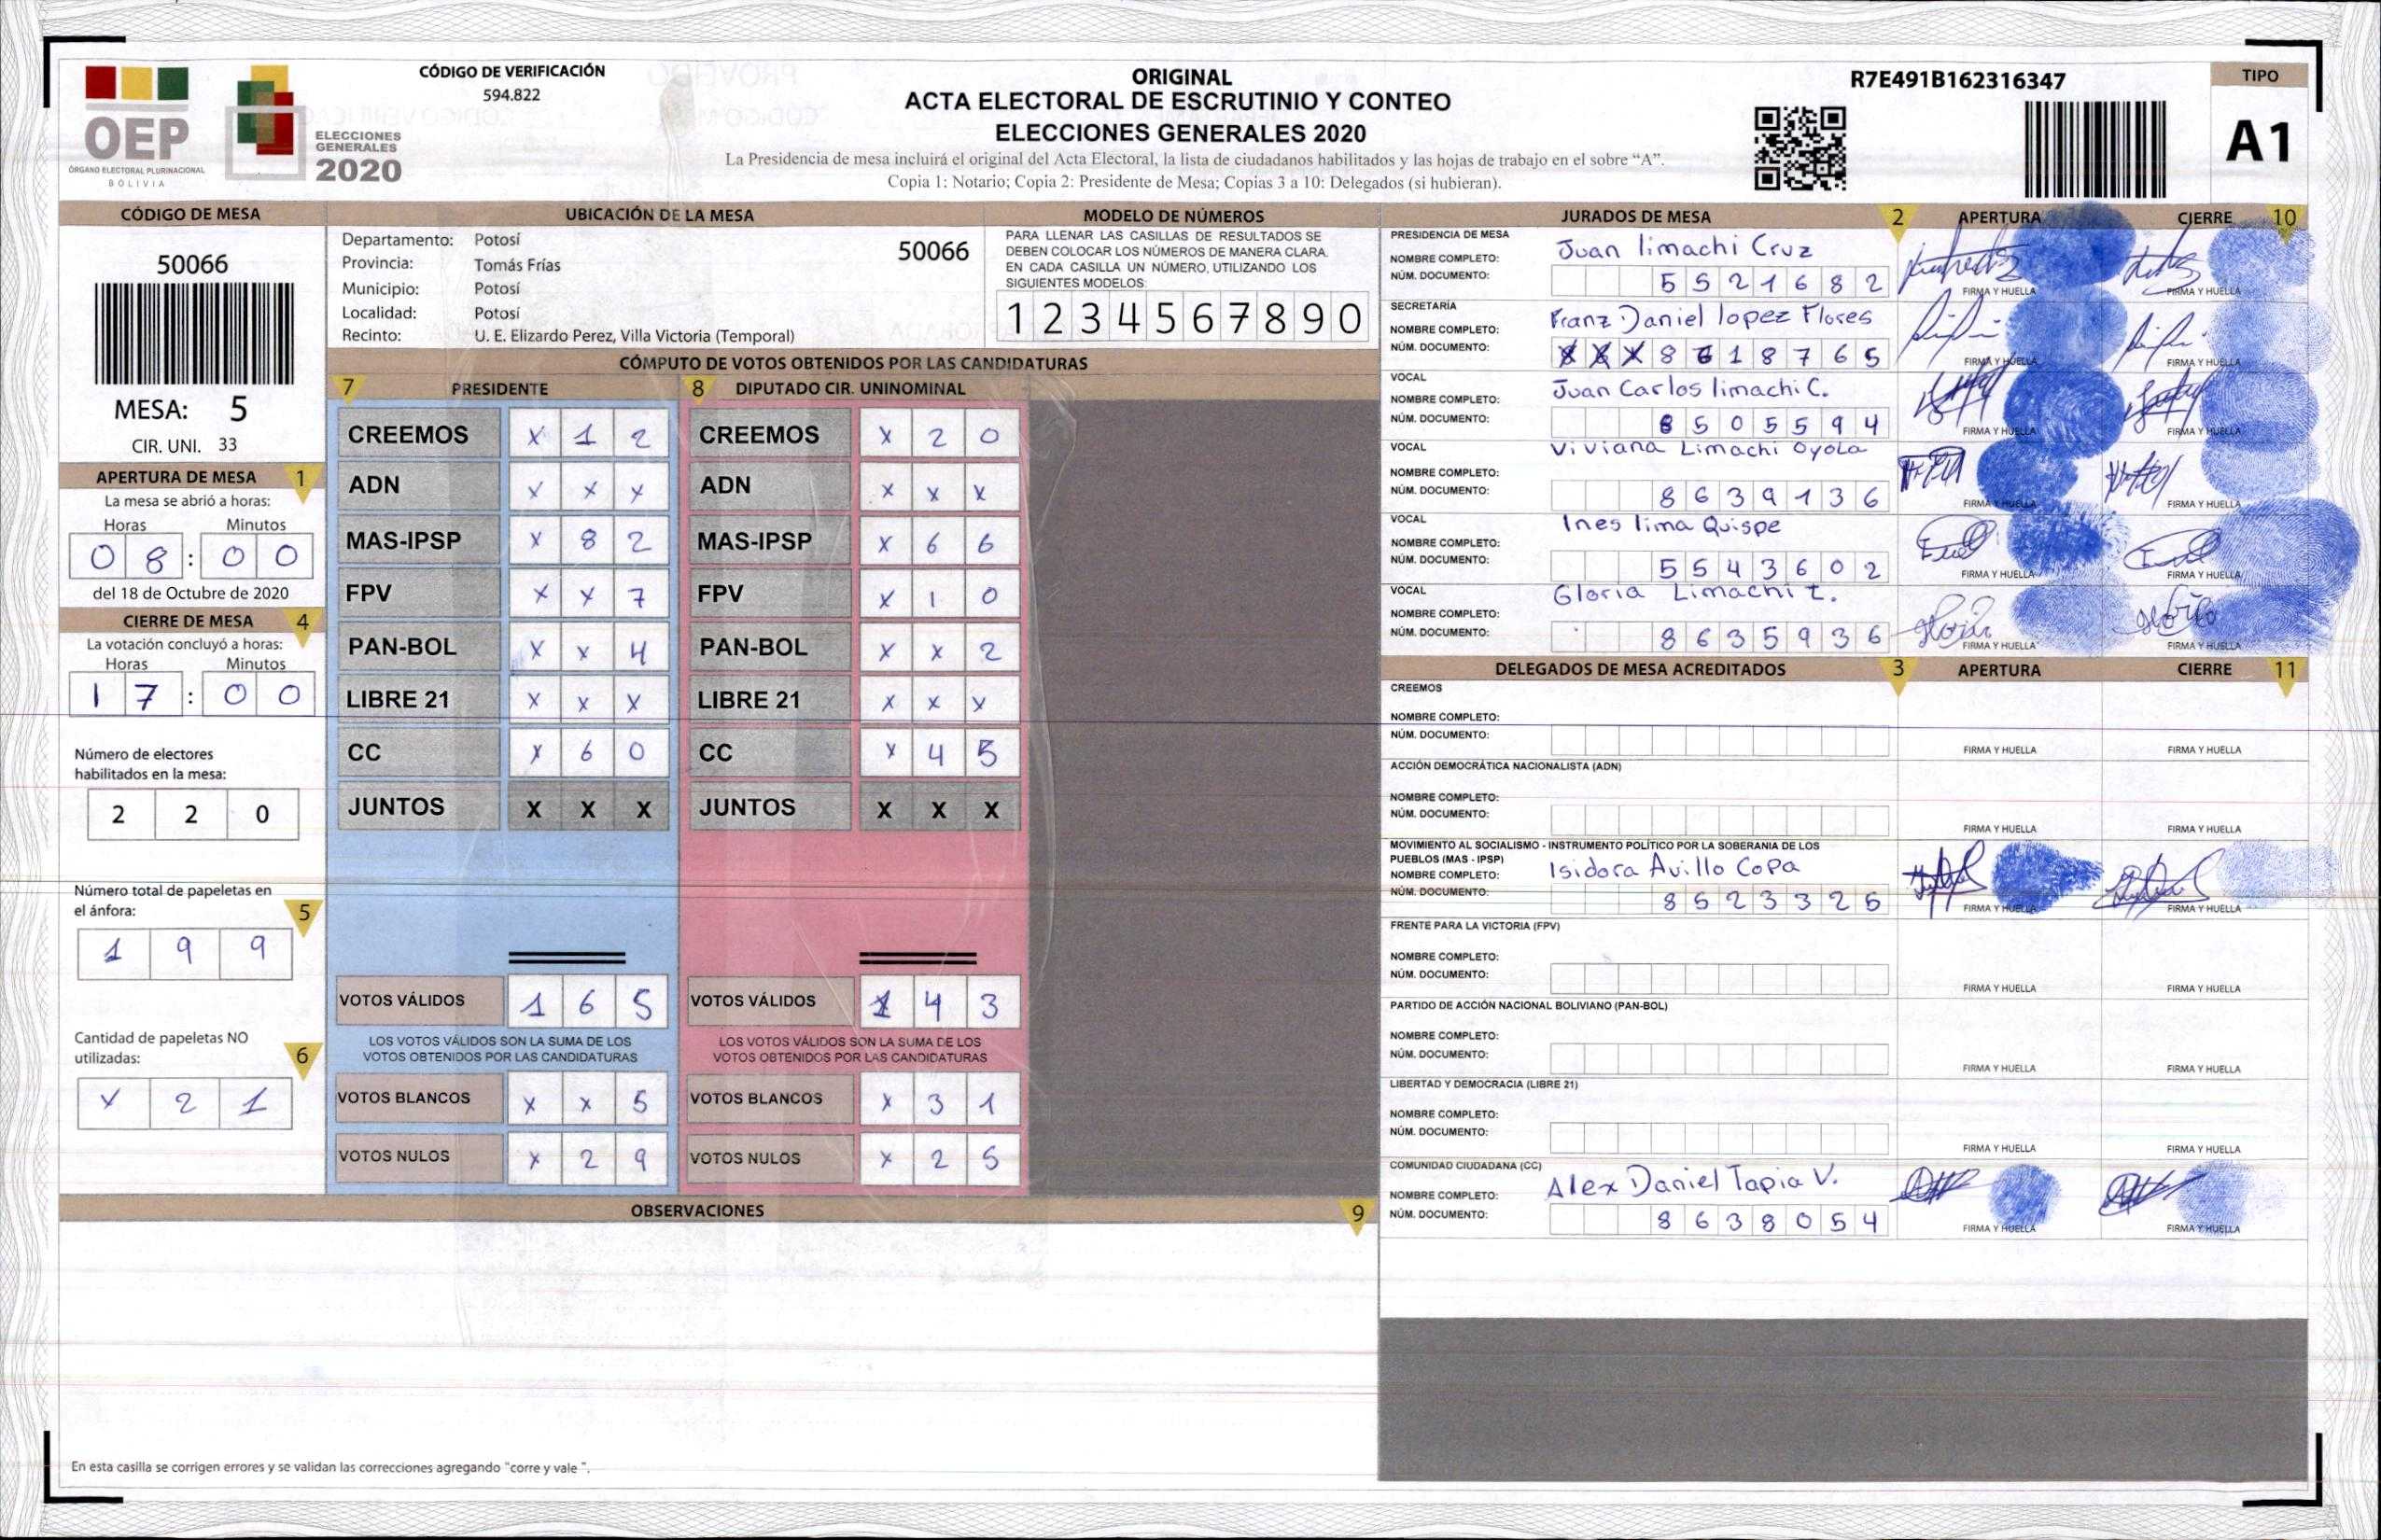 OEP
ÓRGANO ELECTORAL PLURINACIONAL
BOLIVIA
ELECCIONES
GENERALES
2020
CÓDIGO DE VERIFICACIÓN
594.822
ORIGINAL
ACTA ELECTORAL DE ESCRUTINIO Y CONTEO
ELECCIONES GENERALES 2020
La Presidencia de mesa incluirá el original del Acta Electoral, la lista de ciudadanos habilitados y las hojas de trabajo en el sobre “A”.
Copia 1: Notario; Copia 2: Presidente de Mesa; Copias 3 a 10: Delegados (si hubieran).
R7E491B162316347
TIPO
A1
CÓDIGO DE MESA
50066
MESA: 5
CIR. UNI. 33
APERTURA DE MESA 1
La mesa se abrió a horas:
Horas Minutos
08:00
del 18 de Octubre de 2020
CIERRE DE MESA 4
La votación concluyó a horas:
Horas Minutos
17:00
Número de electores
habilitados en la mesa:
2 2 0
Número total de papeletas en
el ánfora: 5
1 9 9
Cantidad de papeletas NO
utilizadas: 6
X 2 1
UBICACIÓN DE LA MESA
Departamento: Potosí 50066
Provincia: Tomás Frías
Municipio: Potosí
Localidad: Potosí
Recinto: U. E. Elizardo Perez, Villa Victoria (Temporal)
MODELO DE NÚMEROS
PARA LLENAR LAS CASILLAS DE RESULTADOS SE
DEBEN COLOCAR LOS NÚMEROS DE MANERA CLARA.
EN CADA CASILLA UN NÚMERO, UTILIZANDO LOS
SIGUIENTES MODELOS:
1 2 3 4 5 6 7 8 9 0
CÓMPUTO DE VOTOS OBTENIDOS POR LAS CANDIDATURAS
7 PRESIDENTE 8 DIPUTADO CIR. UNINOMINAL
CREEMOS X 1 2 CREEMOS X 2 0
ADN X X X ADN X X X
MAS-IPSP X 8 2 MAS-IPSP X 6 6
FPV X X 7 FPV X 1 0
PAN-BOL X X 4 PAN-BOL X X 2
LIBRE 21 X X X LIBRE 21 X X X
CC X 6 0 CC X 4 5
JUNTOS X X X JUNTOS X X X
VOTOS VÁLIDOS 1 6 5 VOTOS VÁLIDOS 1 4 3
LOS VOTOS VÁLIDOS SON LA SUMA DE LOS LOS VOTOS VÁLIDOS SON LA SUMA DE LOS
VOTOS OBTENIDOS POR LAS CANDIDATURAS VOTOS OBTENIDOS POR LAS CANDIDATURAS
VOTOS BLANCOS X X 5 VOTOS BLANCOS X 3 1
VOTOS NULOS X 2 9 VOTOS NULOS X 2 5
OBSERVACIONES 9
En esta casilla se corrigen errores y se validan las correcciones agregando "corre y vale ".
JURADOS DE MESA 2 APERTURA CIERRE 10
PRESIDENCIA DE MESA
NOMBRE COMPLETO: Juan limachi Cruz
NÚM. DOCUMENTO: 5521682 FIRMA Y HUELLA FIRMA Y HUELLA
SECRETARÍA
NOMBRE COMPLETO: Franz Daniel lopez Flores
NÚM. DOCUMENTO: XXX8618765 FIRMA Y HUELLA FIRMA Y HUELLA
VOCAL
NOMBRE COMPLETO: Juan Carlos limachi C.
NÚM. DOCUMENTO: 8505594 FIRMA Y HUELLA FIRMA Y HUELLA
VOCAL
NOMBRE COMPLETO: Viviana Limachi Oyola
NÚM. DOCUMENTO: 8639136 FIRMA Y HUELLA FIRMA Y HUELLA
VOCAL
NOMBRE COMPLETO: Ines lima Quispe
NÚM. DOCUMENTO: 5543602 FIRMA Y HUELLA FIRMA Y HUELLA
VOCAL
NOMBRE COMPLETO: Gloria Limachi t.
NÚM. DOCUMENTO: 8635936 FIRMA Y HUELLA FIRMA Y HUELLA
DELEGADOS DE MESA ACREDITADOS 3 APERTURA CIERRE 11
CREEMOS
NOMBRE COMPLETO:
NÚM. DOCUMENTO: FIRMA Y HUELLA FIRMA Y HUELLA
ACCIÓN DEMOCRÁTICA NACIONALISTA (ADN)
NOMBRE COMPLETO:
NÚM. DOCUMENTO: FIRMA Y HUELLA FIRMA Y HUELLA
MOVIMIENTO AL SOCIALISMO - INSTRUMENTO POLÍTICO POR LA SOBERANIA DE LOS
PUEBLOS (MAS - IPSP)
NOMBRE COMPLETO: Isidora Avillo Copa
NÚM. DOCUMENTO: 8523325 FIRMA Y HUELLA FIRMA Y HUELLA
FRENTE PARA LA VICTORIA (FPV)
NOMBRE COMPLETO:
NÚM. DOCUMENTO: FIRMA Y HUELLA FIRMA Y HUELLA
PARTIDO DE ACCIÓN NACIONAL BOLIVIANO (PAN-BOL)
NOMBRE COMPLETO:
NÚM. DOCUMENTO: FIRMA Y HUELLA FIRMA Y HUELLA
LIBERTAD Y DEMOCRACIA (LIBRE 21)
NOMBRE COMPLETO:
NÚM. DOCUMENTO: FIRMA Y HUELLA FIRMA Y HUELLA
COMUNIDAD CIUDADANA (CC)
NOMBRE COMPLETO: Alex Daniel Tapia V.
NÚM. DOCUMENTO: 8638054 FIRMA Y HUELLA FIRMA Y HUELLA